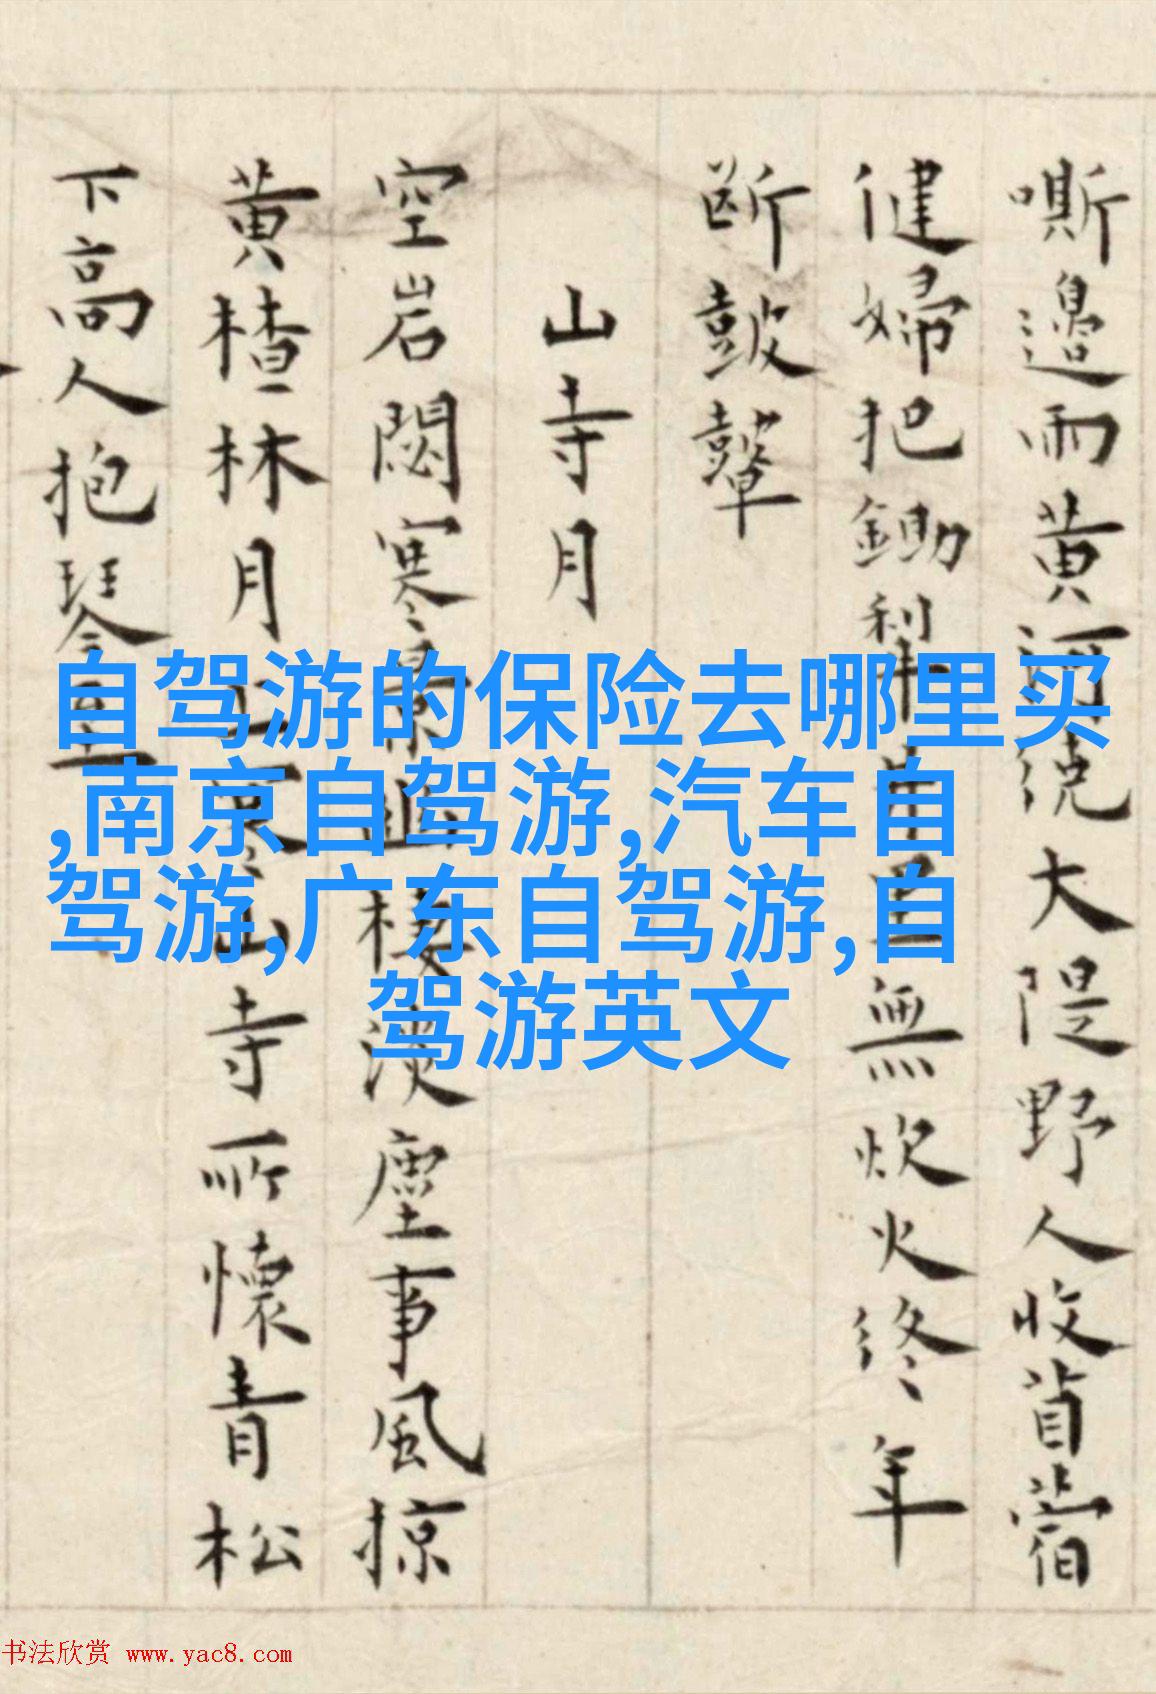 嘶邉雨黄河繞大隄野人收苜蓿
健婦把鋤犂里無炊火終年
斷鼓鼙
山寺月
空岩閟寒幽棲淡塵事風掠
黄楂林月上山寺所懷青松
下高人抱琴至
自驾游的保险去哪里买
,南京自驾游,汽车自
驾游,广东自驾游,自
驾游英文
书法欣赏 www.yac8.com